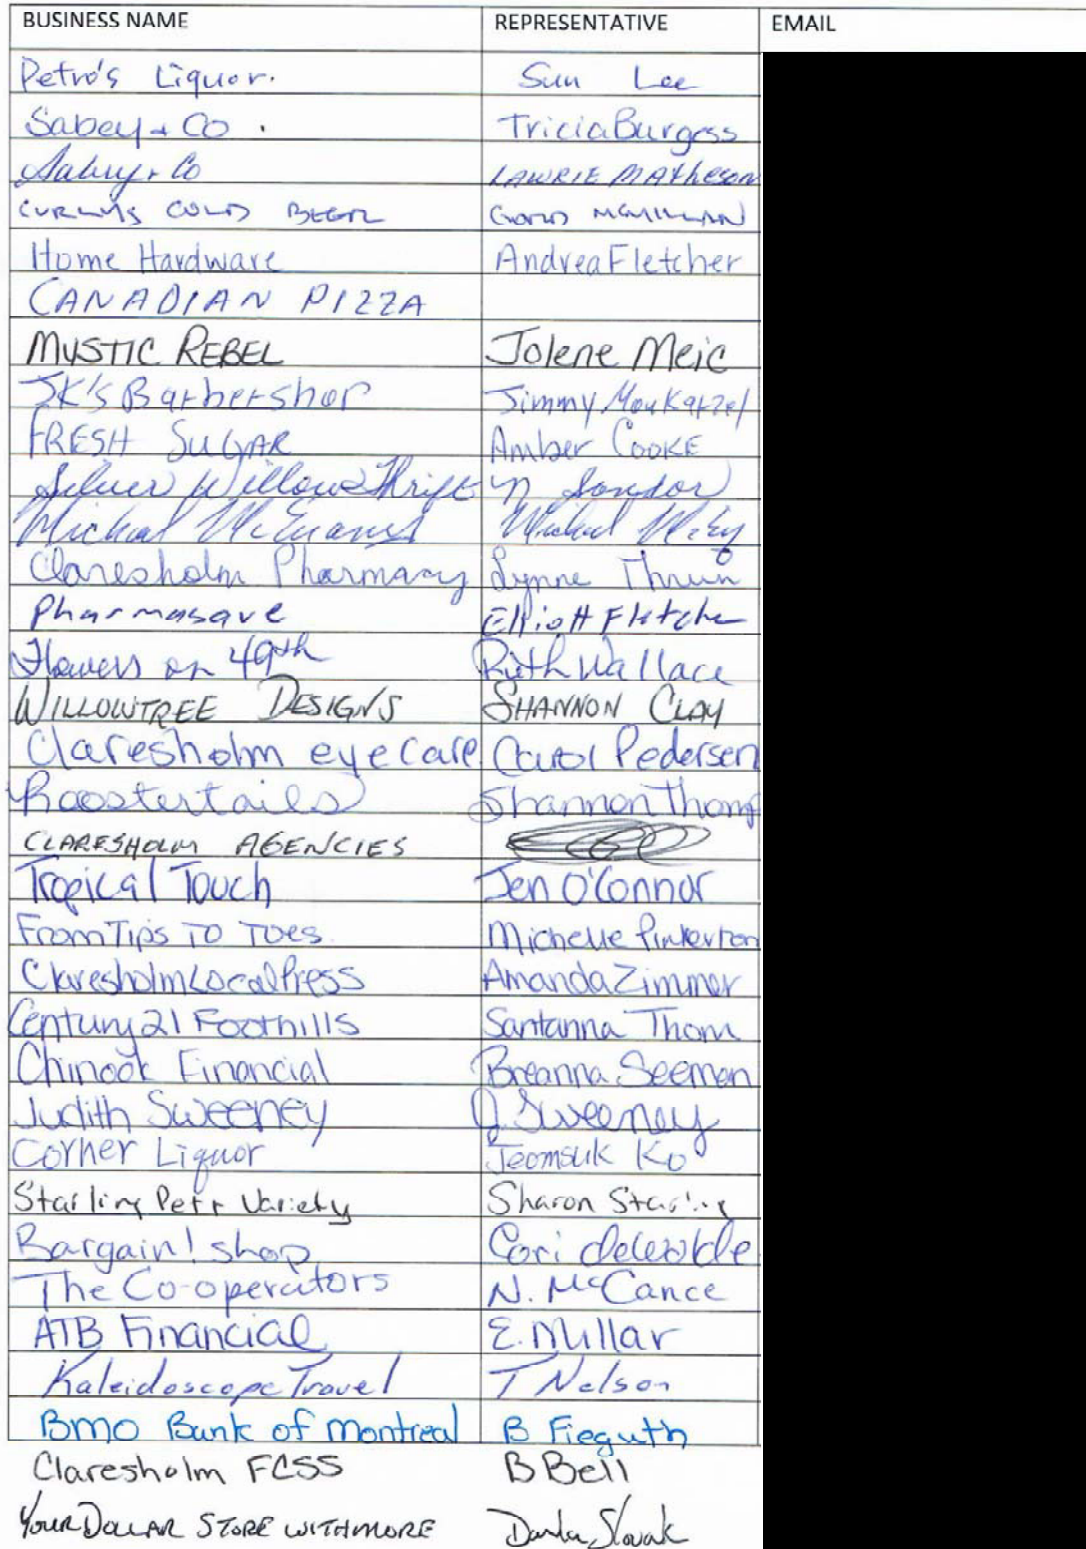 BUSINESS NAME REPRESENTATIVE EMAIL
Petro's Liquor. Sun Lee
Sabey + Co. Tricia Burgess
Sabey + Co LAWRIE MATheson
CURLY'S COLD BEER GORD MCMILLAN
Home Hardware Andrea Fletcher
CANADIAN PIZZA
MYSTIC REBEL Jolene Meic
JK's Barbershop Jimmy Moukarzel
FRESH SUGAR Amber COOKE
Silver Willow Thrift
Michael
Claresholm Pharmacy Lynne Thrun
Pharmasave Elliott Fletcher
Flowers on 49th Ruth Wallace
WILLOWTREE DESIGNS SHANNON CLAY
Claresholm eye care Carol Pedersen
Roostertails Shannon Thomp
CLARESHOLM AGENCIES
Tropical Touch Jen O'Connor
From Tips TO Toes. Michelle Pinkerton
Claresholm Local Press Amanda Zimmer
Century 21 Foothills Santanna Thom
Chinook Financial Breanna Seeman
Judith Sweeney J. Sweeney
Corner Liquor Jeomsuk Ko
Starling Pet + Variety Sharon Starling
Bargain! shop Cori
The Co-operators N. McCance
ATB Financial E. Millar
Kaleidoscope Travel T Nelson
BMO Bank of Montreal B Fieguth
Claresholm FCSS B Bell
YOUR DOLLAR STORE WITH MORE Slovak